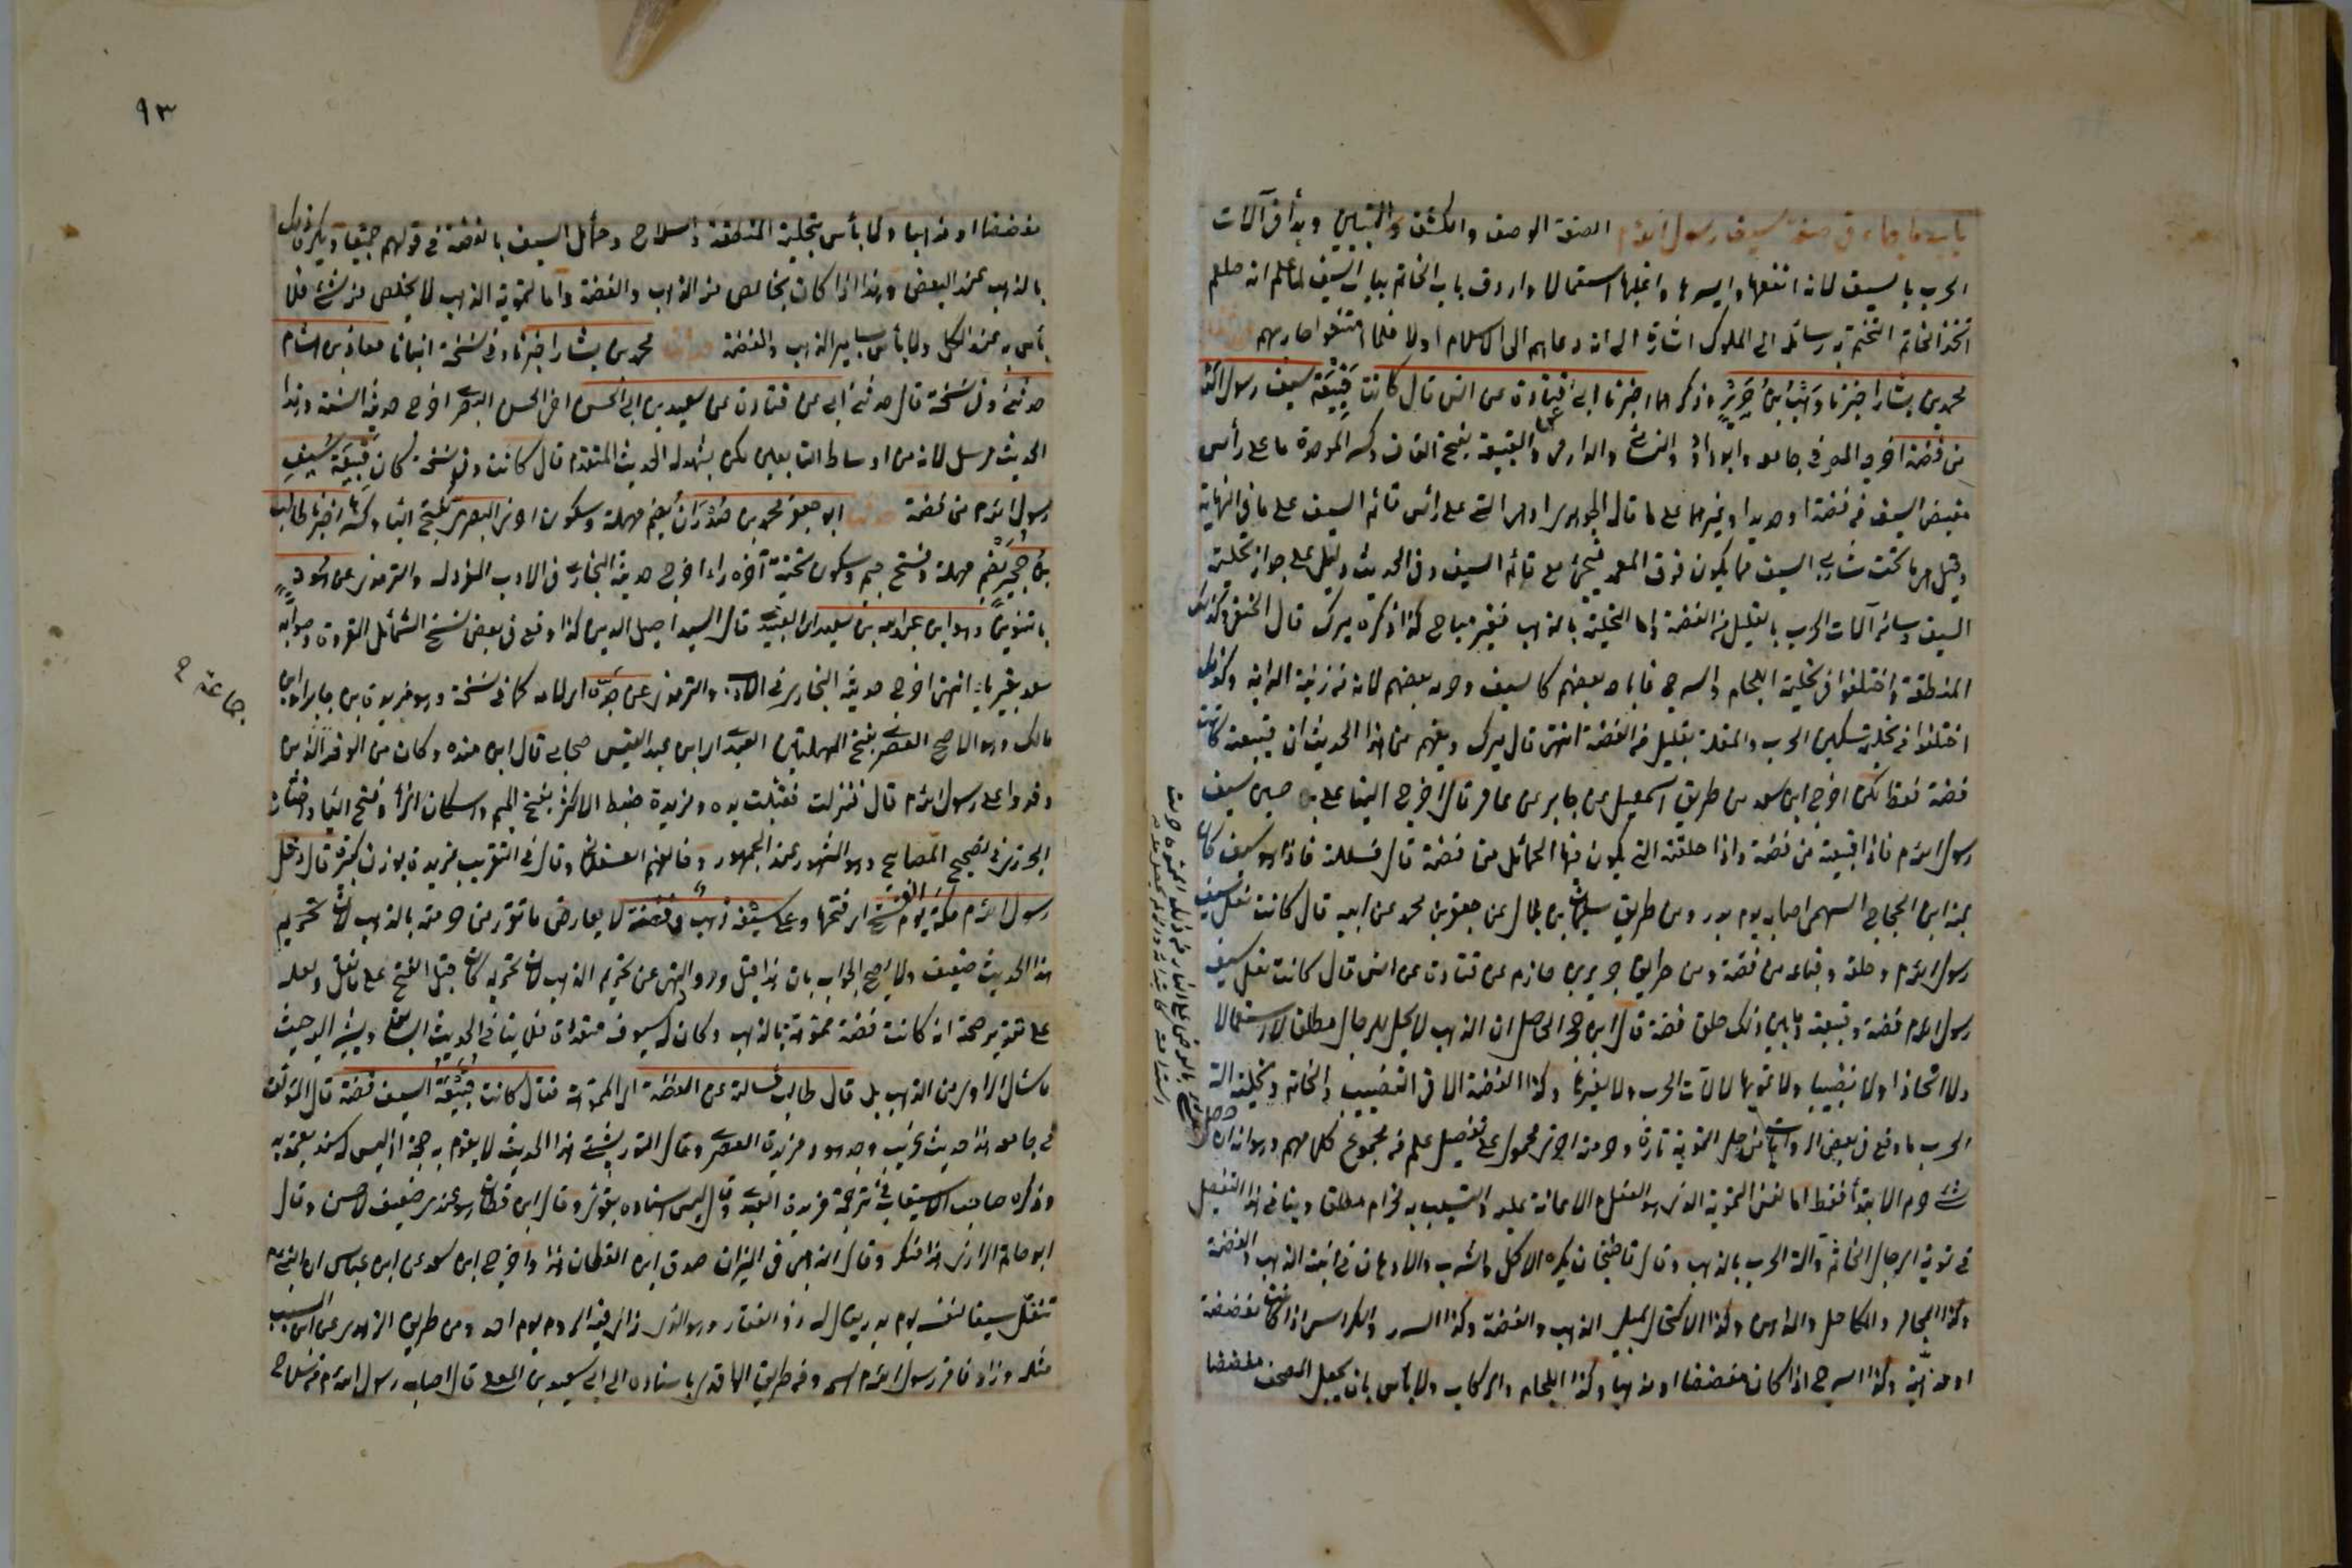 باب ما جاء في صفة سيف رسول الله الصفة الوصف والكشف والتبيين وبدأ في آلات
الحرب بالسيف لانه انفعها وايسرها واغلبها استعمالا واردف باب الخاتم بباب السيف لما علم انه صلعم
اتخذ الخاتم ليختم به رسائله الى الملوك اشارة الى انه دعاهم الى الاسلام اولا فلما امتنعوا حاربهم حدثنا
محمد بن بشار اخبرنا وهب بن جرير اخبرنا ابي عن قتادة عن انس قال كانت قبيعة سيف رسول الله
من فضة اخرجه المصنف في جامعه وابو داود والنسائي والدارمي والقبيعة بفتح القاف وكسر الموحدة ما على رأس
مقبض السيف من فضة او حديد او غيرهما على ما قاله الجوهري او هي التي على رأس قائم السيف على ما في النهاية
وقيل هي ما تحت شاربي السيف مما يكون فوق الغمد فيجئ مع قائم السيف وفي الحديث دليل على جواز تحلية
السيف وسائر آلات الحرب بالقليل من الفضة واما التحلية بالذهب فغير مباح كذا ذكره ميرك قال الحنفي وكذلك
المنطقة واختلفوا في تحلية اللجام والسرج فاباحه بعضهم كالسيف وحرمه بعضهم لانه من زينة الدابة وكذلك
اختلفوا في تحلية سكين الحرب والمقلمة بقليل من الفضة انتهى قال ميرك ويفهم من هذا الحديث ان قبيعته كانت
فضة فقط لكن اخرج ابن سعد من طريق اسمعيل عن جابر عن عامر قال اخرج الينا علي بن حسين سيف
رسول الله فاذا قبيعته من فضة واذا حلقته التي يكون فيها الحمائل من فضة قال فسللته فاذا هو سيف كان
لمنبه ابن الحجاج السهمي اصابه يوم بدر ومن طريق سليمان بن بلال عن جعفر بن محمد عن ابيه قال كانت نعل سيف
رسول الله وحلقه وقباعه من فضة ومن طريق جرير بن حازم عن قتادة عن انس قال كانت نعل سيف
رسول الله فضة وقبيعته وما بين ذلك حلق فضة قال ابن حجر الحاصل ان الذهب لا يحل للرجال مطلقا لا استعمالا
ولا اتخاذا ولا تضبيبا ولا تمويها لا لآلات الحرب ولا لغيرها وكذا الفضة الا في التضبيب والخاتم وتحلية آلة
الحرب ما وقع في بعض الروايات من حل التمويه تارة وحرمته اخرى محمول على تفصيل علم من مجموع كلامهم وهو انه ان حصل
شئ حرم الابتدأ فقط اما نفس التمويه الذي هو الفعل والاعانة عليه والتسبب به فحرام مطلقا وينافي هذا التفصيل
في تمويه الرجال الخاتم وآلة الحرب بالذهب وقال قاضيخان يكره الاكل والشرب والادهان في آنية الذهب والفضة
وكذا المجامر والمكاحل والمداهن وكذا الاكتحال بميل الذهب والفضة وكذا السرر والكراسي اذا كانت مفضضة
او مذهبة وكذا السرج اذا كان مفضضا او مذهبا وكذا اللجام والركاب ولا بأس بان يجعل المصحف مفضضا
٩٣
مفضضا او مذهبا ولا بأس بتحلية المنطقة والسلاح وحمائل السيف بالفضة في قولهم جميعا ويكره ذلك
بالذهب عند البعض وهذا اذا كان يخلص منه الذهب والفضة واما تمويه الذهب لا يخلص منه شئ فلا
بأس به عند الكل ولا بأس بمسامير الذهب والفضة حدثنا محمد بن بشار اخبرنا وفي نسخة انبانا معاذ بن هشام
حدثني وفي نسخة قال حدثني ابي عن قتادة عن سعيد بن ابي الحسن اخي الحسن البصري اخرج حديثه الستة وهذا
الحديث مرسل لانه من اوساط التابعين لكن يشهد له الحديث المتقدم قال كانت وفي نسخة كان قبيعة سيف
رسول الله من فضة حدثنا ابو جعفر محمد بن صدران بضم مهملة وسكون اخرى البصري بفتح الباء وكسرها اخبرنا طالب
بن حجير بضم مهملة وفتح جيم وسكون تحتية آخره راء اخرج حديثه البخاري في الادب المفرد له والترمذي عن هود
بالتنوين وهو ابن عبد الله بن سعيد العبدي قال السيد اصيل الدين كذا وقع في بعض نسخ الشمائل المقروءة وصوابه
سعد بغير ياء انتهى اخرج حديثه البخاري في الادب والترمذي عن جده اي لامه كما في نسخة وهو مزيدة بن جابر او ابن
جماعة ح
مالك وهو الاصح العصري بفتح المهملتين العبدي اي ابن عبد القيس صحابي قال ابن منده وكان من الوفد الذين
وفدوا على رسول الله قال فنزلت فقبلت يده ومزيدة ضبط الاكثر بفتح الميم واسكان الزاي وفتح الياء واختاره
الجزري في تصحيح المصابيح وهو المشهور عند الجمهور وخالفهم العسقلاني وقال في التقريب مزيدة بوزن كبيرة قال دخل
رسول الله مكة يوم الفتح اي فتحها وعلى سيفه ذهب وفضة لا يعارض ما تقرر من حرمته بالذهب لان تحريم
هذا الحديث ضعيف ولا يصح الجواب بان هذا قبل ورود النهي عن تحريم الذهب لان تحريمه كان قبل الفتح على ما نقل ولعله
على تقدير صحة انه كانت فضة مموهة بالذهب وكان له سيوف متعددة فلا ينافي الحديث السابق ويشير اليه حيث
ما سأل الراوي عن الذهب بل قال طالب فسألته عن الفضة اي المموهة فقال كانت قبيعة السيف فضة قال المؤلف
في جامعه هذا حديث غريب وجد هود مزيدة العصري وقال التوربشتي هذا الحديث لا يقوم به حجة اذ ليس له سند يعتد به
وذكره صاحب الاستيعاب في ترجمة مزيدة العبدي وقال ليس اسناده بقوي وقال ابن قطان هو عندي ضعيف لا حسن وقال
ابو حاتم الرازي هذا منكر وقال الذهبي في الميزان صدق ابن القطان هذا واخرج ابن سعد عن ابن عباس ان النبي
تنفل سيفا لنفسه يوم بدر يقال له ذو الفقار وهو الذي رأى فيه الرؤيا يوم احد ومن طريق الزهري عن ابن المسيب
مثله وزاد فاقر رسول الله اسمه ومن طريق الواقدي باسناده الى ابي سعيد بن المعلى قال اصاب رسول الله من سلاح